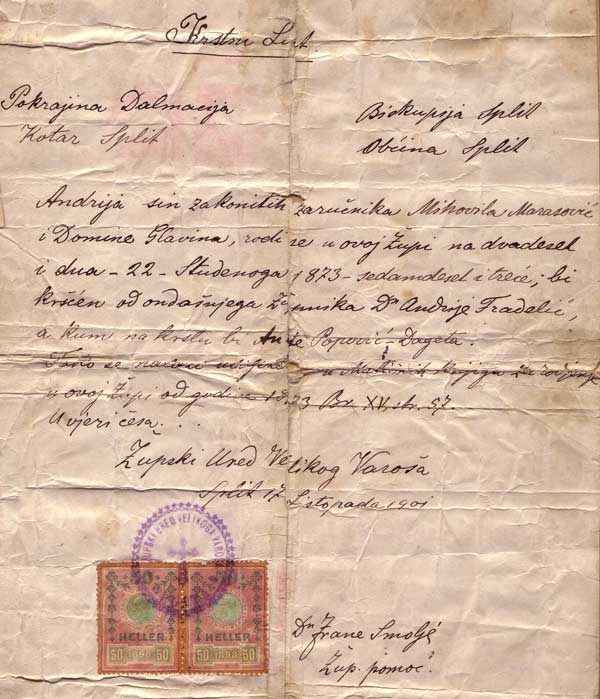 Krstni List.
Pokrajina Dalmacija
Biskupija Split
Kotar Split
Obćina Split
Andrija sin zakonitih zaručnika Mihovila Marasović
i Domine Glavina, rodi se u ovoj Župi na dvadeset
i dva - 22 - Studenoga 1873 - sedamdeset i treće; bi
kršćen od ondašnjega Župnika Dn Andrije Tradelić,
a kum na krstu bi Ante Popović-Dageta.
Tako se u Matičnih Knjiga
u ovoj Župi od godine 1873 Br. XV, str. 57.
U vjeri česa...
Župski Ured Velikog Varoša
Split 17 Listopada 1901
ŽUPSKI URED VELIKOGA VAROŠA
50 50
HELLER HELLER
50 1898 50 50 1898 50
Dn Frane Smoljć
Žup. pomoć.